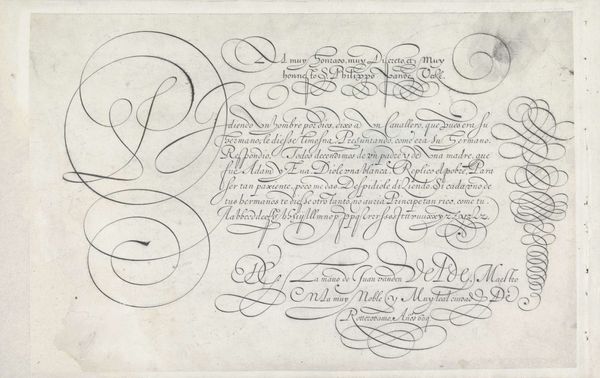 Al muy Honrado, muy Discreto, et Muy
honnesto S. Philippo
Pidiendo Un hombre por dios, dixo a Un Cavallero, que pues era su
hermano, le diesse limosna. Preguntando, come era Su Hermano.
Respondio. Todos decendimos de Un padre y de Una madre, que
fue Adam y Eua. Diole Una blanca. Replico el pobre, Para
ser tan pariente, poco me dao. Despidiole diziendo. Si cada Uno de
tus hermanos te diesse otro tanto, no auria Principe tan rico, come tu.
De La mano de Juan vanden Velde, Maestro
En La muy Noble y Muy leal ciudad De
Rotterdamo. Año